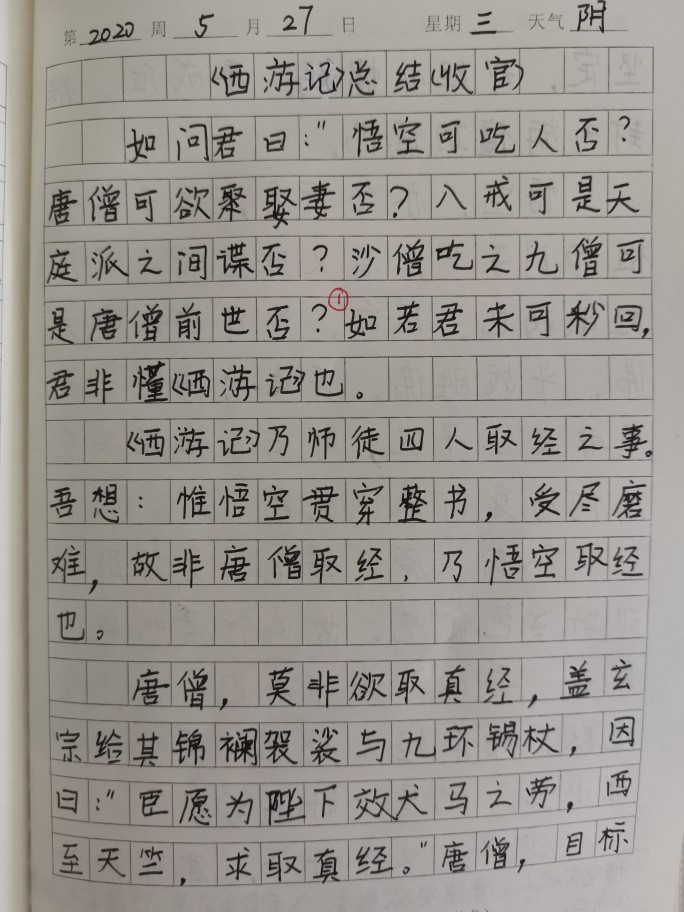 第 2020 周 5 月 27 日 星期 三 天气 阴
《西游记》总结(收官)
如问君曰:"悟空可吃人否?
唐僧可欲聚娶妻否?八戒可是天
庭派之间谍否?沙僧吃之九僧可
是唐僧前世否?①如若君未可秒回,
君非懂《西游记》也。
《西游记》乃师徒四人取经之事。
吾想:惟悟空贯穿整书,受尽磨
难,故非唐僧取经,乃悟空取经
也。
唐僧,莫非欲取真经,盖玄
宗给其锦襕袈裟与九环锡杖,因
曰:"臣愿为陛下效犬马之劳,西
至天竺,求取真经。"唐僧,目标